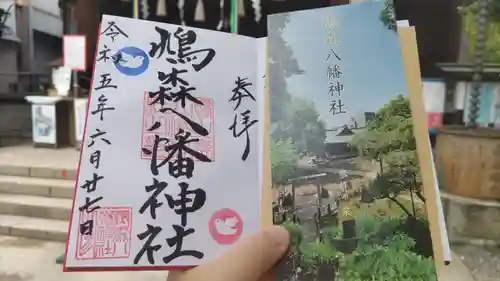 奉拝
鳩森八幡神社
令和五年六月廿七日
鳩森八幡神社